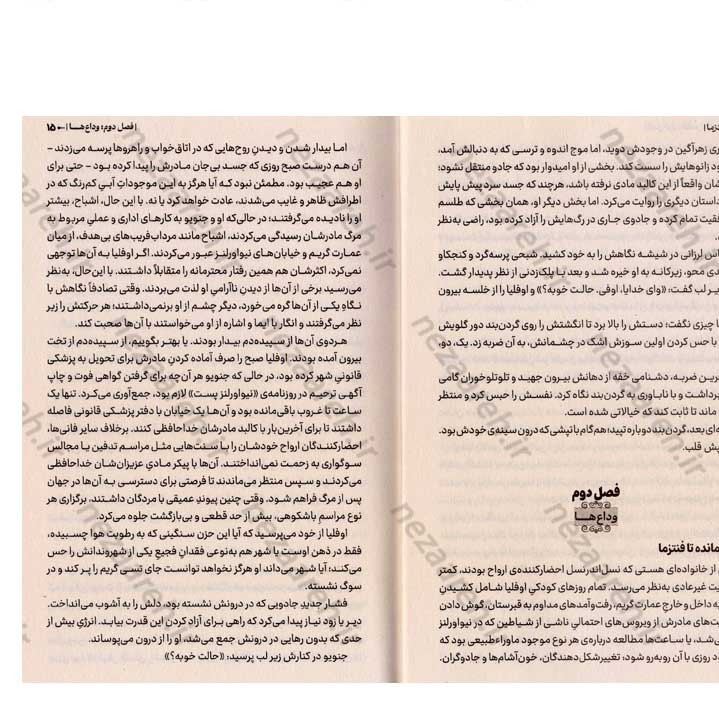 فصل دوم: وداع‌هـا | ۱۵
اما بیدار شدن و دیدنِ روح‌هایی که در اتاق‌خواب و راهروها پرسه می‌زدند –
آن هم درست صبح روزی که جسد بی‌جان مادرش را پیدا کرده بود – حتی برای
او هم عجیب بود. مطمئن نبود که آیا هرگز به این موجوداتِ آبیِ کم‌رنگ که در
اطرافش ظاهر و غایب می‌شدند، عادت خواهد کرد یا نه. با این حال، اشباح، بیشتر
او را نادیده می‌گرفتند؛ در حالی‌که او و جنویو به کارهای اداری و عملیِ مربوط به
مرگ مادرشان رسیدگی می‌کردند، اشباح مانند مرداب‌فریب‌های بی‌هدف، از میان
عمارت گریم و خیابان‌های نیواورلنز عبور می‌کردند. اگر اوفلیا به آن‌ها توجهی
نمی‌کرد، اکثرشان هم همین رفتار محترمانه را متقابلاً داشتند. با این‌حال، به‌نظر
می‌رسید برخی از آن‌ها از دیدنِ ناآرامیِ او لذت می‌بردند. وقتی تصادفاً نگاهش با
نگاهِ یکی از آن‌ها گره می‌خورد، دیگر چشم از او برنمی‌داشتند؛ هر حرکتش را زیر
نظر می‌گرفتند و انگار با ایما و اشاره از او می‌خواستند با آن‌ها صحبت کند.
هردوی آن‌ها از سپیده‌دم بیدار بودند. یا بهتر بگوییم، از سپیده‌دم از تخت
بیرون آمده بودند. اوفلیا صبح را صرف آماده کردنِ مادرش برای تحویل به پزشکی
قانونیِ شهر کرده بود، در حالی که جنویو هر آن‌چه برای گرفتن گواهی فوت و چاپ
آگهی ترحیم در روزنامه‌ی «نیواورلنز پست» لازم بود، جمع‌آوری می‌کرد. تنها یک
ساعت تا غروب باقی‌مانده بود و آن‌ها یک خیابان با دفتر پزشکی قانونی فاصله
داشتند تا برای آخرین‌بار با کالبد مادرشان خداحافظی کنند. برخلاف سایر فانی‌ها،
احضارکنندگانِ ارواح خودشان را با سنت‌هایی مثل مراسم تدفین یا مجالس
سوگواری به زحمت نمی‌انداختند. آن‌ها با پیکر مادیِ عزیزان‌شان خداحافظی
می‌کردند و سپس منتظر می‌ماندند تا فرصتی برای دسترسی به آن‌ها در جهان
پس از مرگ فراهم شود. وقتی چنین پیوندِ عمیقی با مردگان داشتند، برگزاری هر
نوع مراسمِ باشکوهی، بیش از حد قطعی و بی‌بازگشت جلوه می‌کرد.
اوفلیا از خود می‌پرسید که آیا این حزنِ سنگینی که به رطوبت هوا چسبیده،
فقط در ذهن اوست یا شهر هم به‌نوعی فقدانِ فجیعِ یکی از شهروندانش را حس
می‌کند؛ آیا شهر می‌داند او هرگز نخواهد توانست جای تسی گریم را پر کند و در
سوگ نشسته.
فشار جدیدِ جادویی که در درونش نشسته بود، دلش را به آشوب می‌انداخت.
دیر یا زود نیاز پیدا می‌کرد که راهی برای آزاد کردنِ این قدرت بیابد. انرژیِ بیش از
حدی که بدون رهایی در درونش جمع می‌شد، او را از درون می‌پوساند.
جنویو در کنارش زیر لب پرسید: «حالت خوبه؟»
زهرآگین در وجودش دوید، اما موج اندوه و ترسی که به دنبالش آمد،
زانوهایش را سست کند. بخشی از او امیدوار بود که جادو منتقل نشود؛
واقعاً از این کالبد مادی نرفته باشد، هرچند که جسد سرد پیش پایش
داستان دیگری را روایت می‌کرد. اما بخش دیگر او، همان بخشی که طلسم
تمام کرده و جادوی جاری در رگ‌هایش را آزاد کرده بود، راضی به‌نظر
لرزانی در شیشه نگاهش را به خود کشید. شبحی پرسه‌گرد و کنجکاو
محو، زیرکانه به او خیره شد و بعد با پلک‌زدنی از نظر پدیدار گشت.
لب گفت: «وای خدایا، اوفی. حالت خوبه؟» و اوفلیا را از خلسه بیرون
چیزی نگفت؛ دستش را بالا برد تا انگشتش را روی گردن‌بند دور گلویش
با حس کردن اولین سوزش اشک در چشمانش، به آن ضربه زد. یک، دو،
ضربه، دشنامی خفه از دهانش بیرون جهید و تلوتلوخوران گامی
برداشت و با ناباوری به گردن‌بند نگاه کرد. نفسش را حبس کرد و منتظر
ماند تا ثابت کند که خیالاتی شده است.
بعد، گردن‌بند دوباره تپید؛ هم‌گام با تپشی که درون سینه‌ی خودش بود.
قلب.
فصل دوم
وداع‌هـا
مانده تا فنتزما
از خانواده‌ای هستی که نسل‌اندرنسل احضارکننده‌ی ارواح بودند، کمتر
غیرعادی به‌نظر می‌رسد. تمام روزهای کودکیِ اوفلیا شامل کشیدنِ
به داخل و خارج عمارت گریم، رفت‌وآمدهای مداوم به قبرستان، گوش دادن
مادرش از ویروس‌های احتمالیِ ناشی از شیاطین که در نیواورلنز
یا ساعت‌ها مطالعه درباره‌ی هر نوع موجود ماوراءطبیعی بود که
روزی با آن روبه‌رو شود؛ تغییرشکل‌دهندگان، خون‌آشام‌ها و جادوگران.